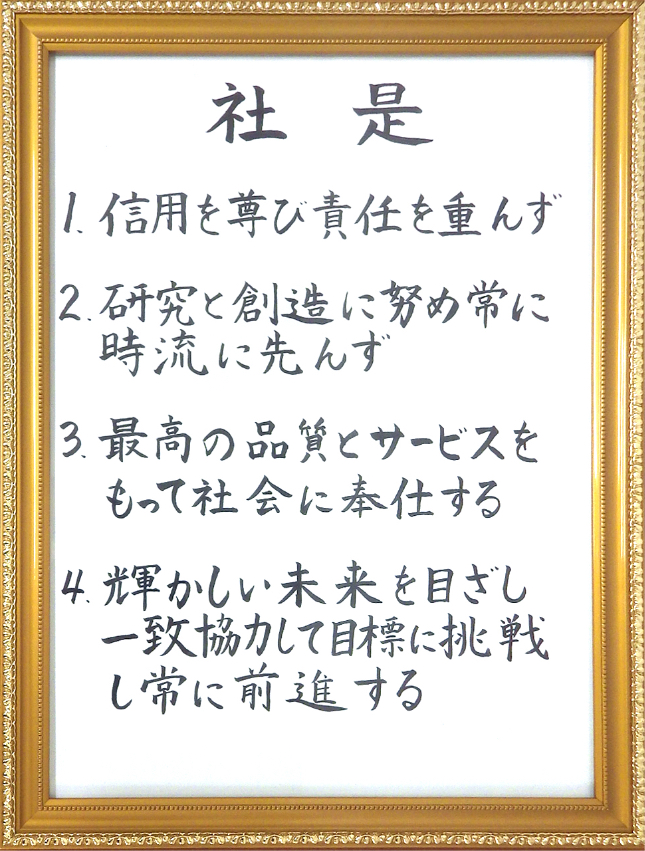 社 是
1. 信用を尊び責任を重んず
2. 研究と創造に努め常に
時流に先んず
3. 最高の品質とサービスを
もって社会に奉仕する
4. 輝かしい未来を目ざし
一致協力して目標に挑戦
し常に前進する